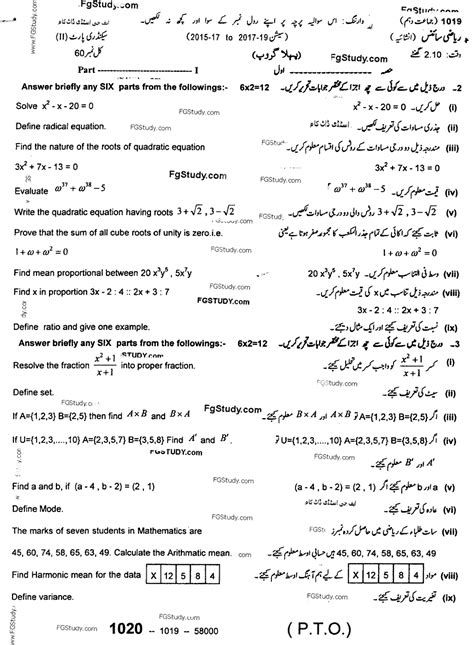 FGStudy.com
1019
(جماعت دہم)
وارننگ: اس سوالیہ پرچہ پر اپنے رول نمبر کے سوا اور کچھ نہ لکھیں۔
ریاضی سائنس (انشائیہ)
(سیشن 19-2017 to 17-2015)
سیکنڈری پارٹ (II)
وقت: 2.10 گھنٹے
FGStudy.com
(پہلا گروپ)
کل نمبر 60
حصہ اول Part I
Answer briefly any SIX parts from the followings:- 6x2=12 2- درج ذیل میں سے کوئی سے چھ اجزا کے مختصر جوابات تحریر کریں۔
Solve x² - x - 20 = 0 (i) حل کریں۔ x² - x - 20 = 0
FGStudy.com
Define radical equation. (ii) جذری مساوات کی تعریف لکھیں۔
FGStudy.com
Find the nature of the roots of quadratic equation (iii) مندرجہ ذیل دو درجی مساوات کے روٹس کی اقسام معلوم کریں۔
3x² + 7x - 13 = 0 3x² + 7x - 13 = 0
FGStudy.com
Evaluate ω³⁷ + ω³⁸ – 5 (iv) قیمت معلوم کریں۔ ω³⁷ + ω³⁸ – 5
Write the quadratic equation having roots 3+√2 , 3–√2 (v) روٹس والی دو درجی مساوات لکھیں۔ 3+√2 , 3–√2
Prove that the sum of all cube roots of unity is zero.i.e. (vi) ثابت کیجئے کہ اکائی کے تمام جذر المکعب کا مجموعہ صفر ہوتا ہے یعنی
1+ω+ω² = 0 FGStudy.com 1+ω+ω² = 0
Find mean proportional between 20 x³y⁵ , 5x⁷y (vii) وسط فی التناسب معلوم کریں۔ 20 x³y⁵ , 5x⁷y
Find x in proportion 3x - 2 : 4 :: 2x + 3 : 7 FGStudy.com (viii) مندرجہ ذیل تناسب میں x کی قیمت معلوم کریں۔
FGSTUDY.com 3x - 2 : 4 :: 2x + 3 : 7
Define ratio and give one example. (ix) نسبت کی تعریف کیجئے اور ایک مثال دیجئے۔
Answer briefly any SIX parts from the followings:- 6x2=12 3- درج ذیل میں سے کوئی سے چھ اجزا کے مختصر جوابات تحریر کریں۔
Resolve the fraction (x²+1)/(x+1) into proper fraction. (i) کسر (x²+1)/(x+1) کو واجب کسر میں تحلیل کیجئے۔
FGStudy.com
Define set. (ii) سیٹ کی تعریف کیجئے۔
If A={1,2,3} B={2,5} then find A×B and B×A FGStudy.com (iii) A={1,2,3} B={2,5} اگر تو A×B اور B×A معلوم کیجئے۔
If U={1,2,3,....,10} A={2,3,5,7} B={3,5,8} Find A′ and B′. (iv) اگر U={1,2,3,....,10} A={2,3,5,7} B={3,5,8} تو
FGSTUDY.com A′ اور B′ معلوم کیجئے۔
FGStudy.com
Find a and b, if (a - 4 , b - 2) = (2 , 1) (v) a اور b معلوم کیجئے اگر (a - 4 , b - 2) = (2 , 1)
FGStudy.com
Define Mode. (vi) عادہ کی تعریف کیجئے۔
FGStudy.com
The marks of seven students in Mathematics are (vii) سات طلباء کے ریاضی میں حاصل کردہ نمبرز
45, 60, 74, 58, 65, 63, 49. Calculate the Arithmetic mean. 45, 60, 74, 58, 65, 63, 49 ہیں حسابی اوسط معلوم کیجئے۔
Find Harmonic mean for the data X 12 5 8 4 (viii) مواد X 12 5 8 4 کے لیے ہم آہنگ اوسط معلوم کیجئے۔
Define variance. FGStudy.com (ix) تغیریت کی تعریف کیجئے۔
FGStudy.com 1020 -- 1019 -- 58000 (P.T.O.)
FGStudy.com
www.FGStudy.com